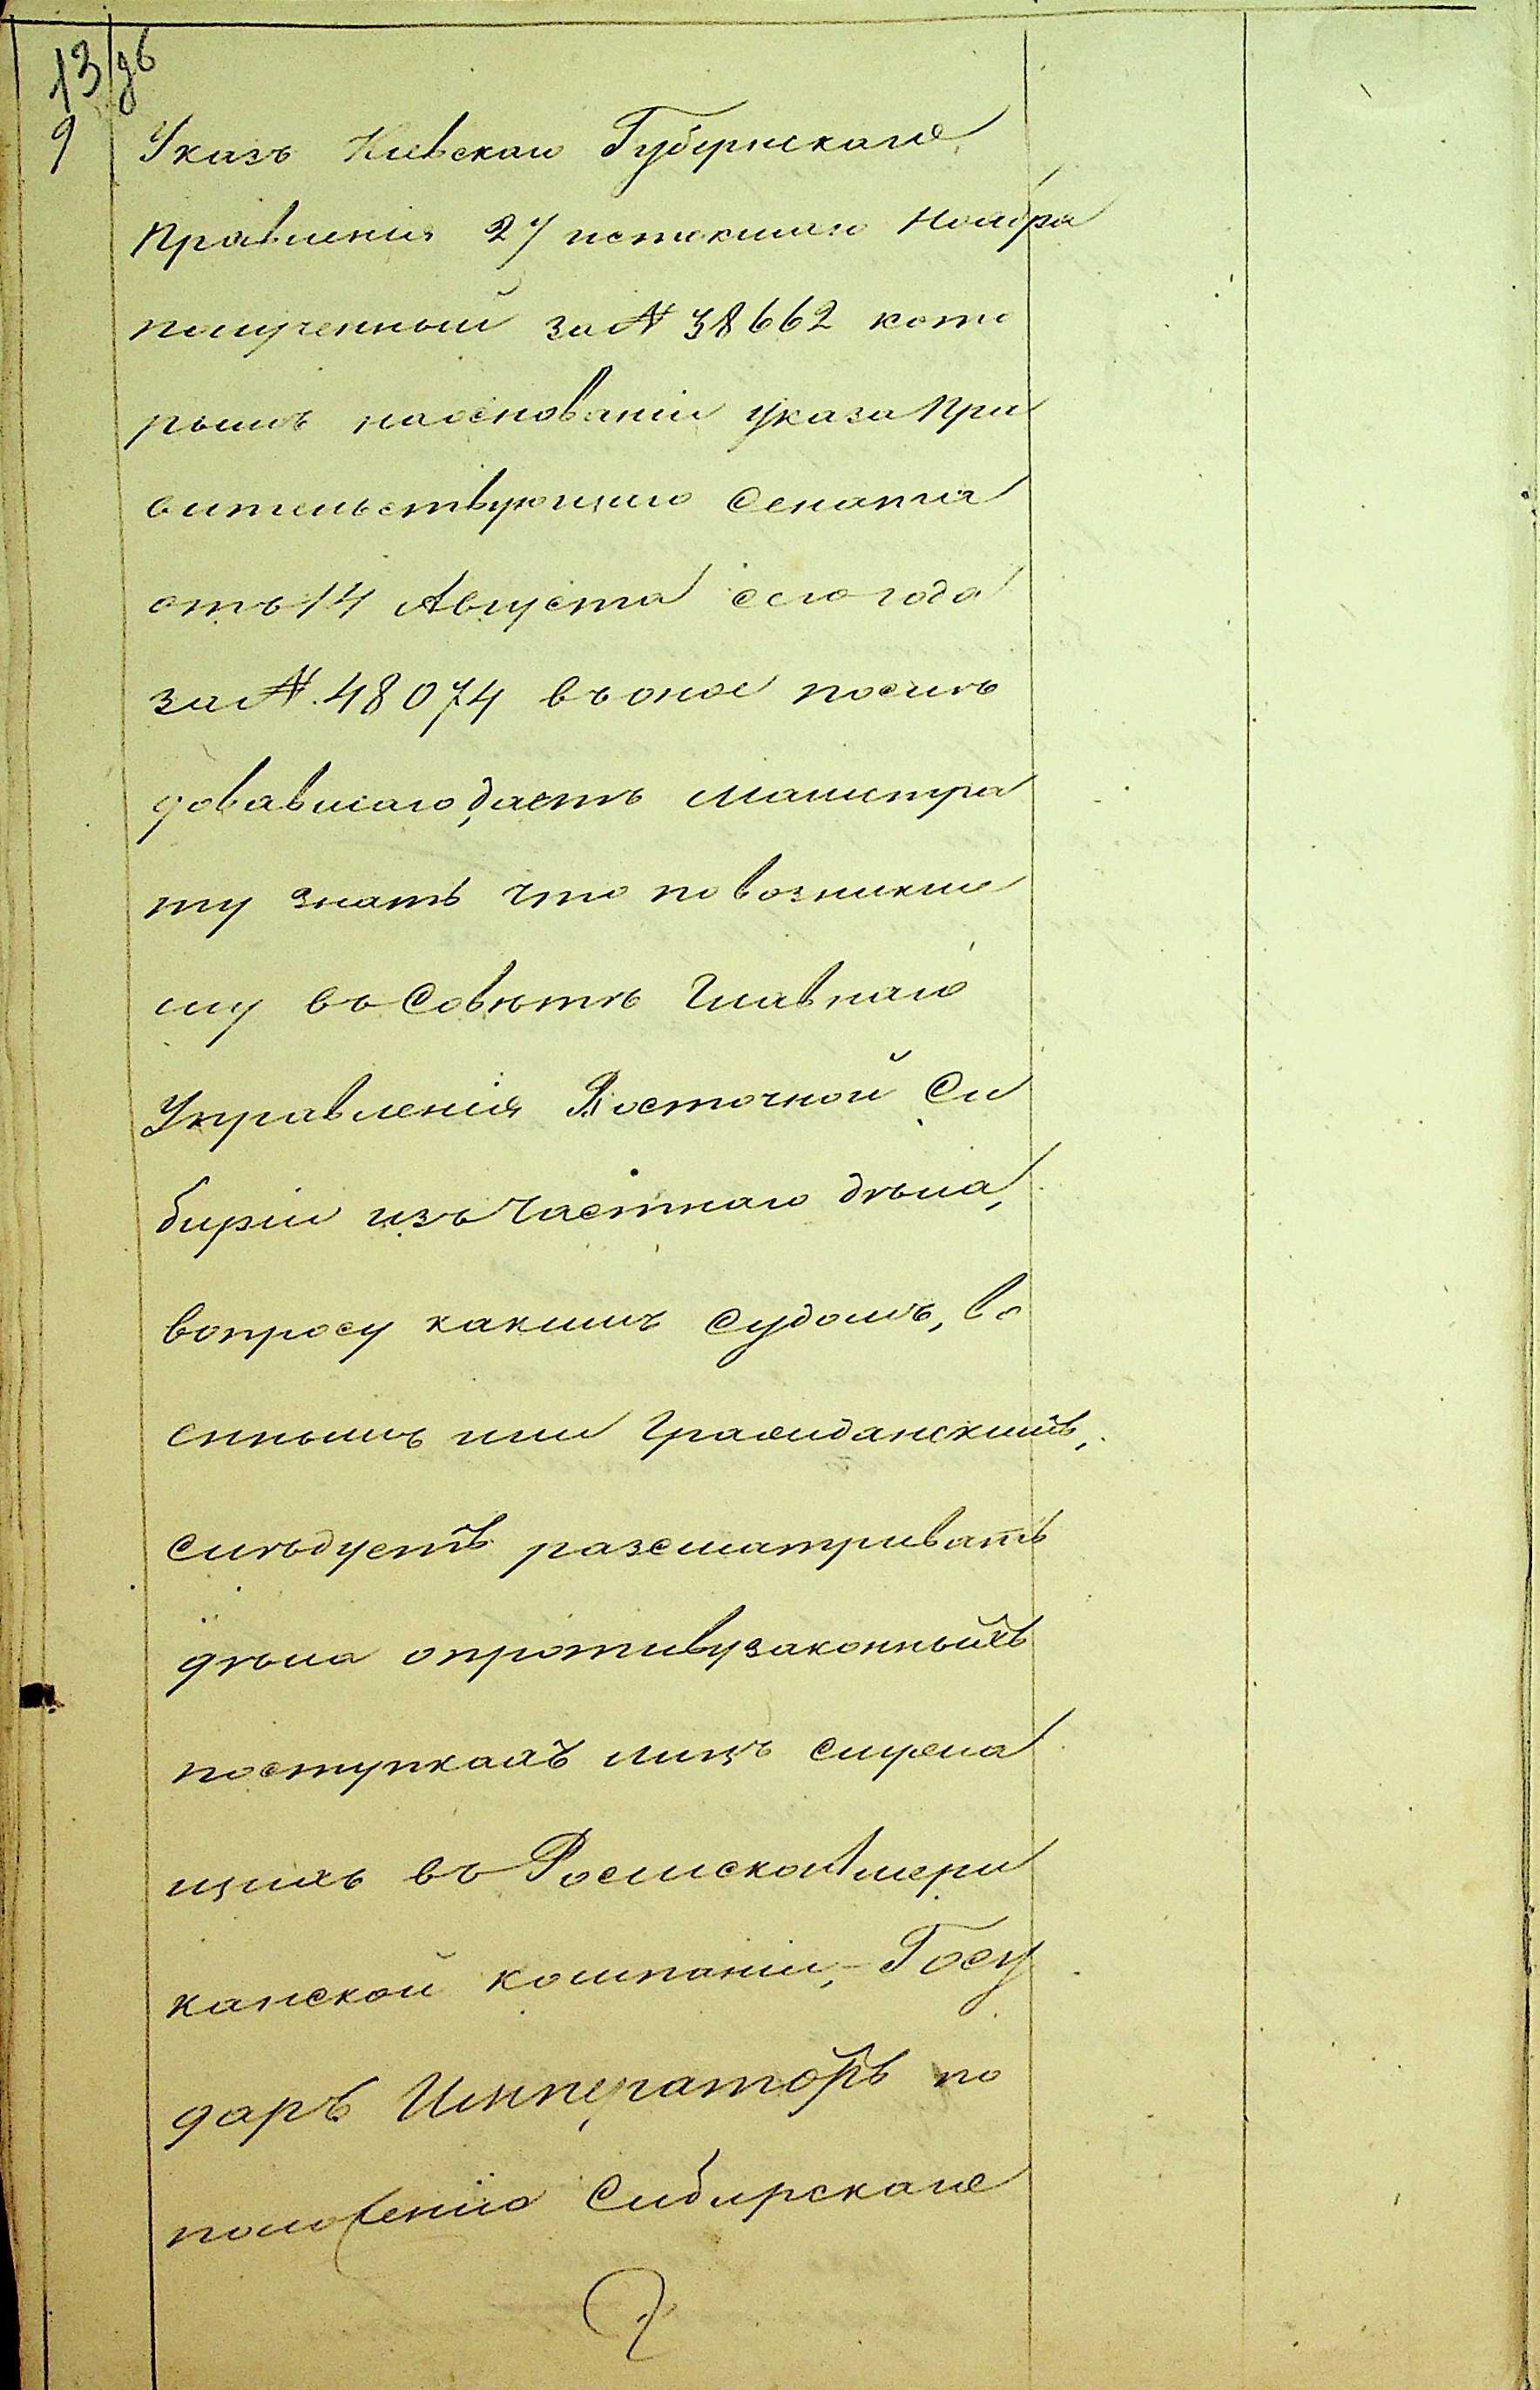 13/96
9 Указъ Киевскаго Губернскаго
Правленія 27 истекшаго Ноября
полученный за № 38662 кото
рымъ на основаніи указа Пра
вительствующаго Сената
отъ 14 Августа сего года
за №. 48074 въ оное послѣ
довавшаго, даетъ Магистра
ту знать что по возникше
му въ Совѣтѣ Главнаго
Управленія Восточной Си
биріи изъ частнаго дѣла,
вопросу какимъ судомъ, во
еннымъ или гражданскимъ,
слѣдуетъ разсматривать
дѣла о противузаконныхъ
поступкахъ лицъ служа
щихъ въ Росийско Амери
канской компаніи, - Госу
даръ Императоръ по
положенію Сибирскаго